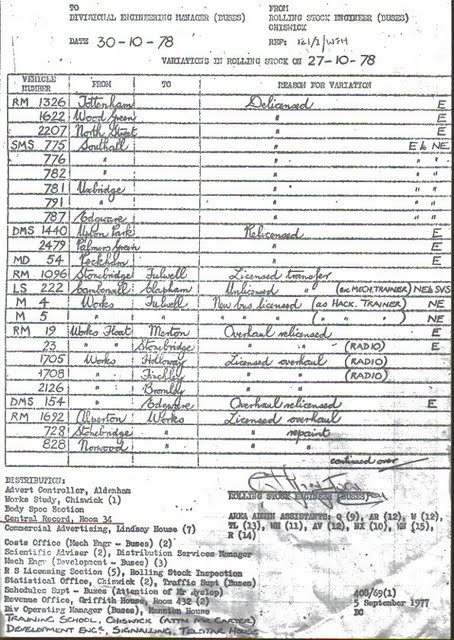 TO FROM
DIVISIONAL ENGINEERING MANAGER (BUSES) ROLLING STOCK ENGINEER (BUSES)
CHISWICK
DATE 30-10-78 REF:
VARIATIONS IN ROLLING STOCK ON 27-10-78
VEHICLE NUMBER FROM TO REASON FOR VARIATION
RM 1326 Tottenham Delicensed E
1622 Wood Green " E
2207 North Street " E
SMS 775 Southall " E & NE
776 " " " "
782 " " " "
781 Uxbridge " " "
791 " " " "
787 Edgware " " "
DMS 1440 Upton Park Relicensed E
2479 Palmers Green " E
MD 54 Peckham " E
RM 1096 Stonebridge Fulwell Licensed transfer
LS 222 Camberwell Clapham Unlicensed (ex MECH. TRAINER) NE & SVS
M 4 Works Fulwell New bus licensed (as MACK. TRAINER) NE
M 5 " " " " ( " " ) NE
RM 19 Works Float Merton Overhaul relicensed E
23 " " Stonebridge " " (RADIO) E
1705 Works Holloway Licensed overhaul (RADIO)
1708 " Finchley " " (RADIO)
2126 " Bromley " "
DMS 154 " Edgware Overhaul relicensed E
RM 1692 Alperton Works Licensed overhaul
728 Stonebridge " " repaint
828 Norwood " " "
continued over
DISTRIBUTION:
Advert Controller, Aldenham
Works Study, Chiswick (1)
Body Spec Section
Central Record, Room 34
Commercial Advertising, Lindsay House (7)
Costs Office (Mech Engr - Buses) (2)
Scientific Adviser (2), Distribution Services Manager
Mech Engr (Development - Buses) (3)
R S Licensing Section (5), Rolling Stock Inspection
Statistical Office, Chiswick (2), Traffic Supt (Buses)
Schedules Supt - Buses (Attention of Mr Dyslop)
Revenue Office, Griffith House, Room 432 (2)
Div Operating Manager (Buses), Mansion House
TRAINING SCHOOL, CHISWICK (ATTN MR CARTER)
DEVELOPMENT ENGR, SIGNALLING, TELSTAR HOUSE
ROLLING STOCK ENGINEER (BUSES)
AREA ADMIN ASSISTANTS: Q (9), AR (12), W (12),
TL (13), WH (11), AV (12), HX (10), WW (15),
R (14)
400/69(1)
5 September 1977
DC